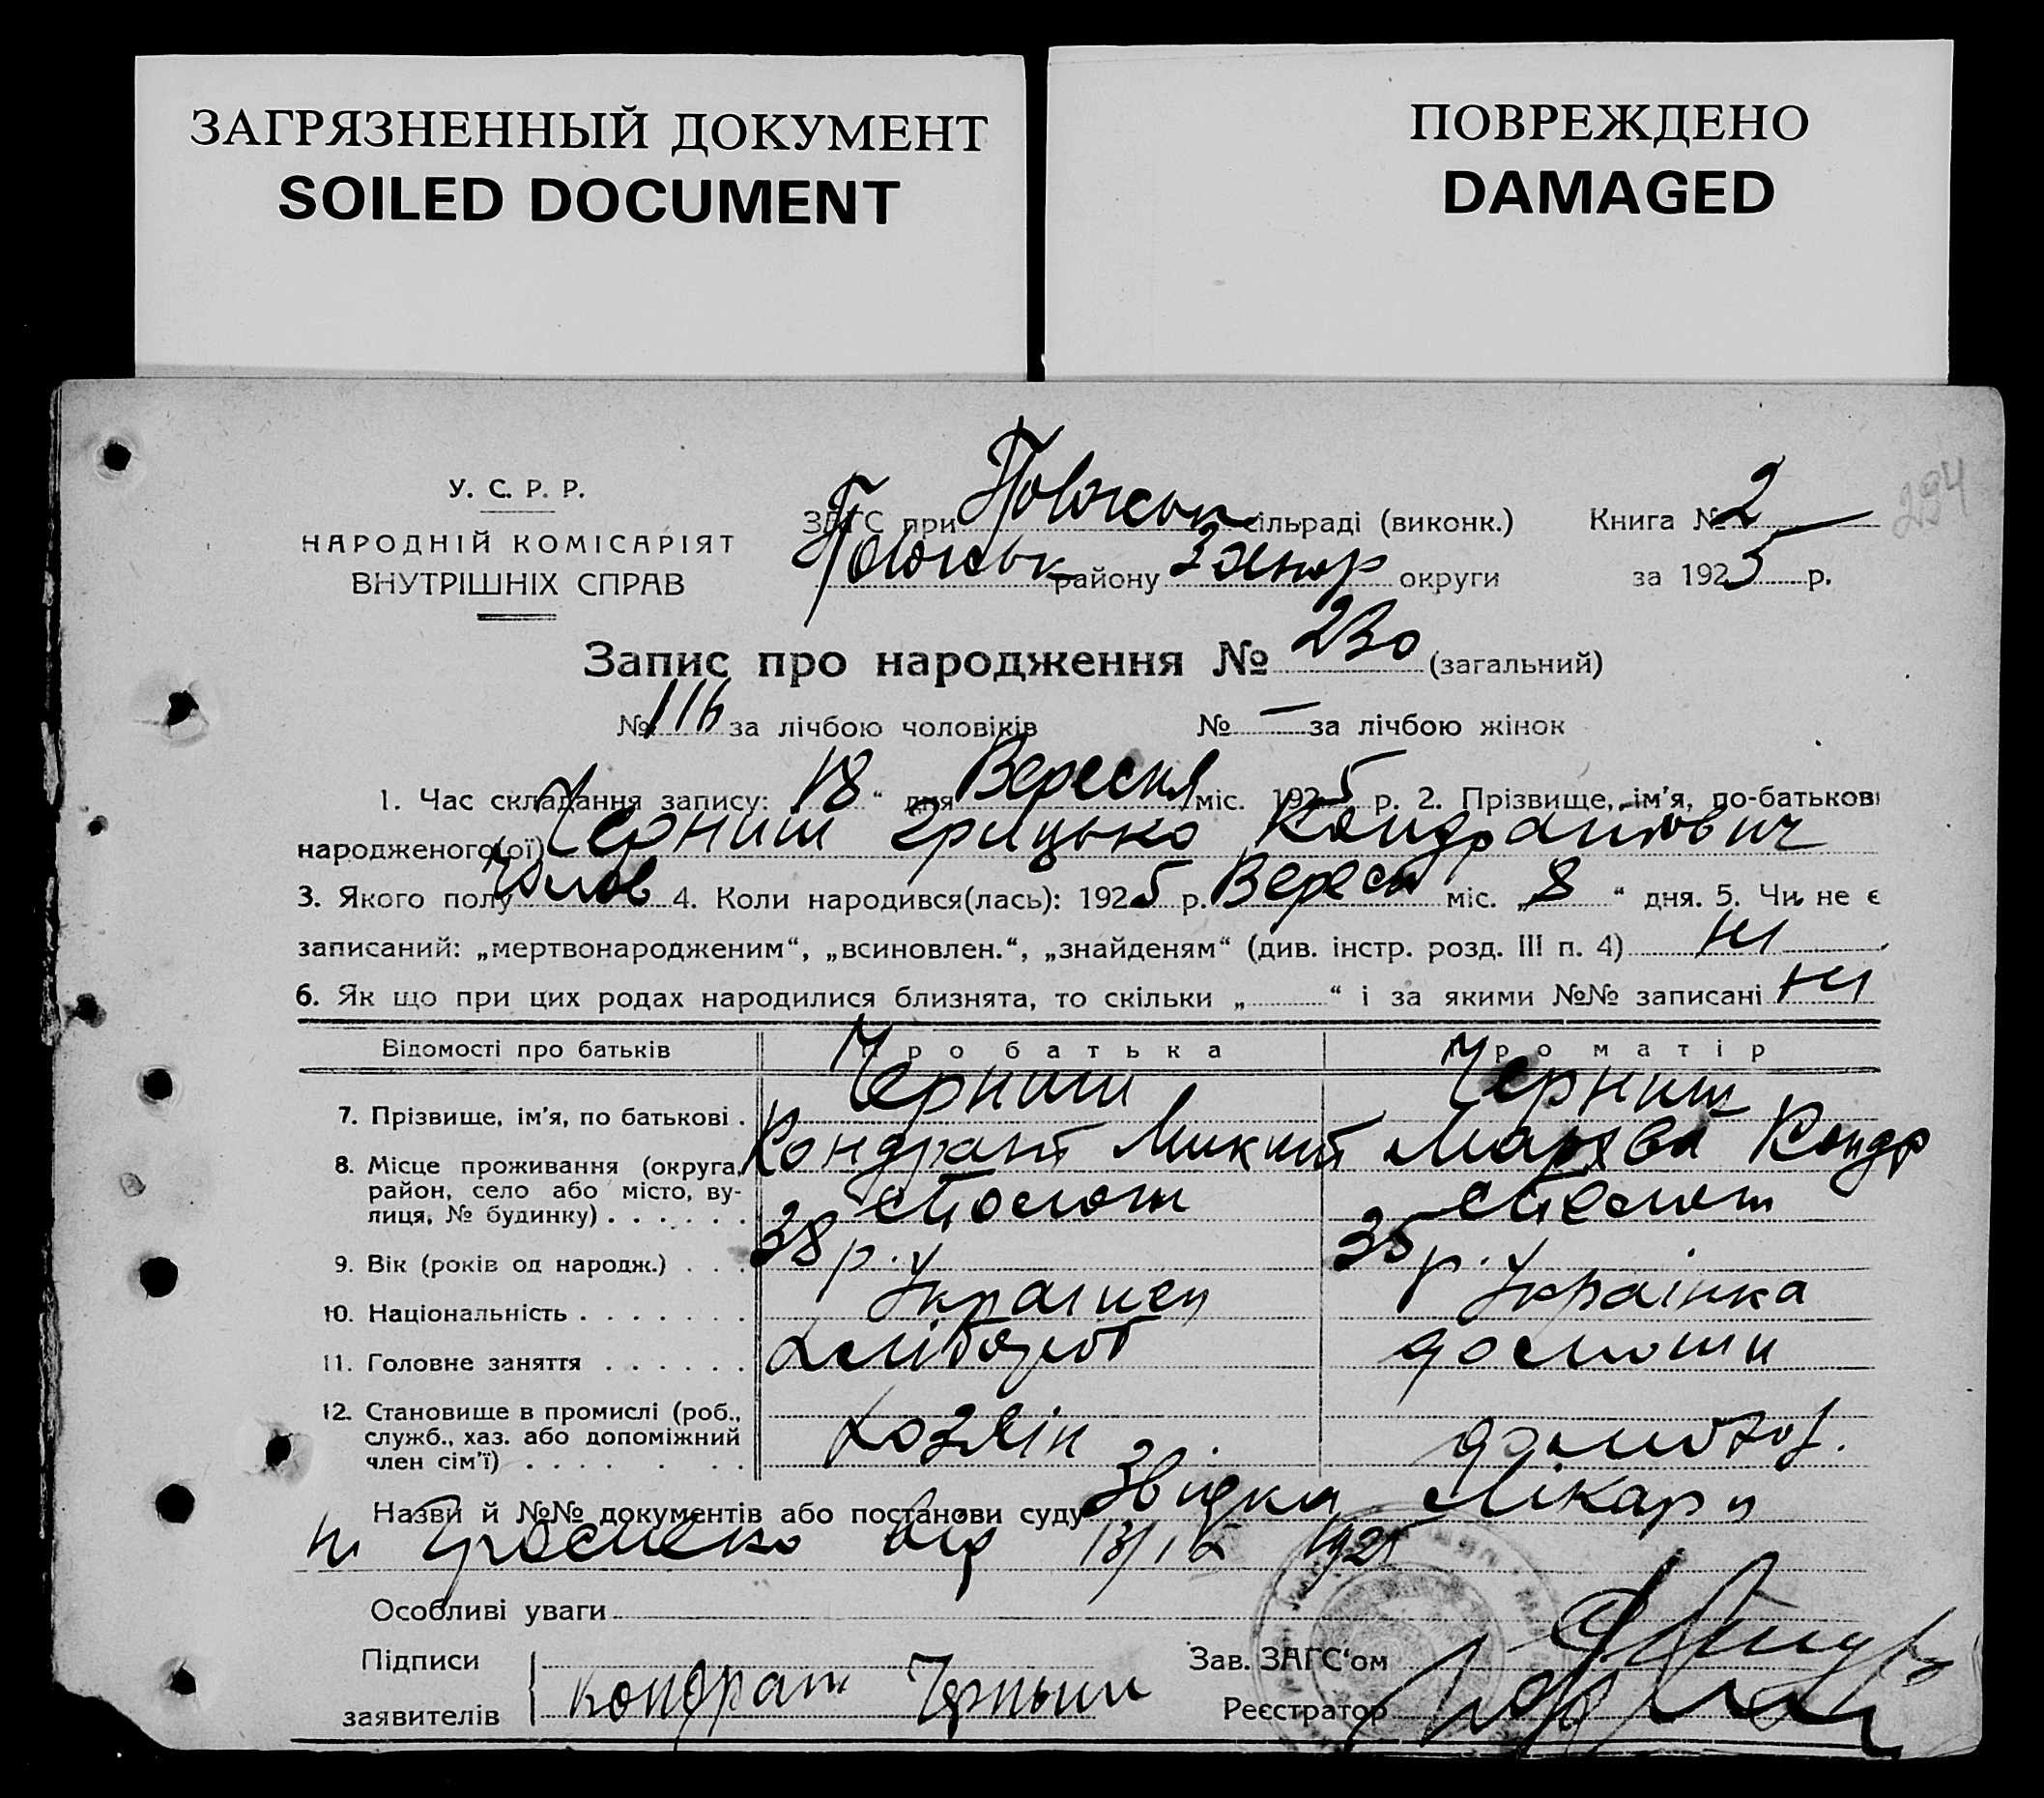 ЗАГРЯЗНЕННЫЙ ДОКУМЕНТ
SOILED DOCUMENT
ПОВРЕЖДЕНО
DAMAGED
294
У. С. Р. Р.
НАРОДНІЙ КОМІСАРІЯТ
ВНУТРІШНІХ СПРАВ
ЗАГС при сільраді (виконк.) Книга № 2
району округи за 1925 р.
Запис про народження № 230 (загальний)
№ 116 за лічбою чоловіків № — за лічбою жінок
1. Час складання запису: 18 “ дня Вересня міс. 1925 р. 2. Прізвище, ім’я, по-батькові
народженого(ої) Черниш Грицько Кондратович
3. Якого полу Чолов 4. Коли народився(лась): 1925 р. Вересн міс. „8“ дня. 5. Чи не є
записаний: „мертвонародженим“, „всиновлен.“, „знайденям“ (див. інстр. розд. III п. 4) Ні
6. Як що при цих родах народилися близнята, то скільки „ “ і за якими №№ записані Ні
Відомості про батьків Про батька Про матір
7. Прізвище, ім’я, по батькові . Черниш Черниш
Кондрат Микит Кондр
8. Місце проживання (округа,
район, село або місто, ву-
лиця, № будинку) . . . . . .
9. Вік (років од народж.) . . . 38 р. 35 р.
10. Національність . . . . . . . Українец Українка
11. Головне заняття . . . . . . Хлібороб
12. Становище в промислі (роб.,
служб., хаз. або допоміжний
член сім’ї) . . . . . . . Хозяїн
Назви й №№ документів або постанови суду Звідка Лікаря
від 13/IX 1925
Особливі уваги
Підписи Зав. ЗАГС‘ом
заявителів Кондрат Черныш Реєстратор